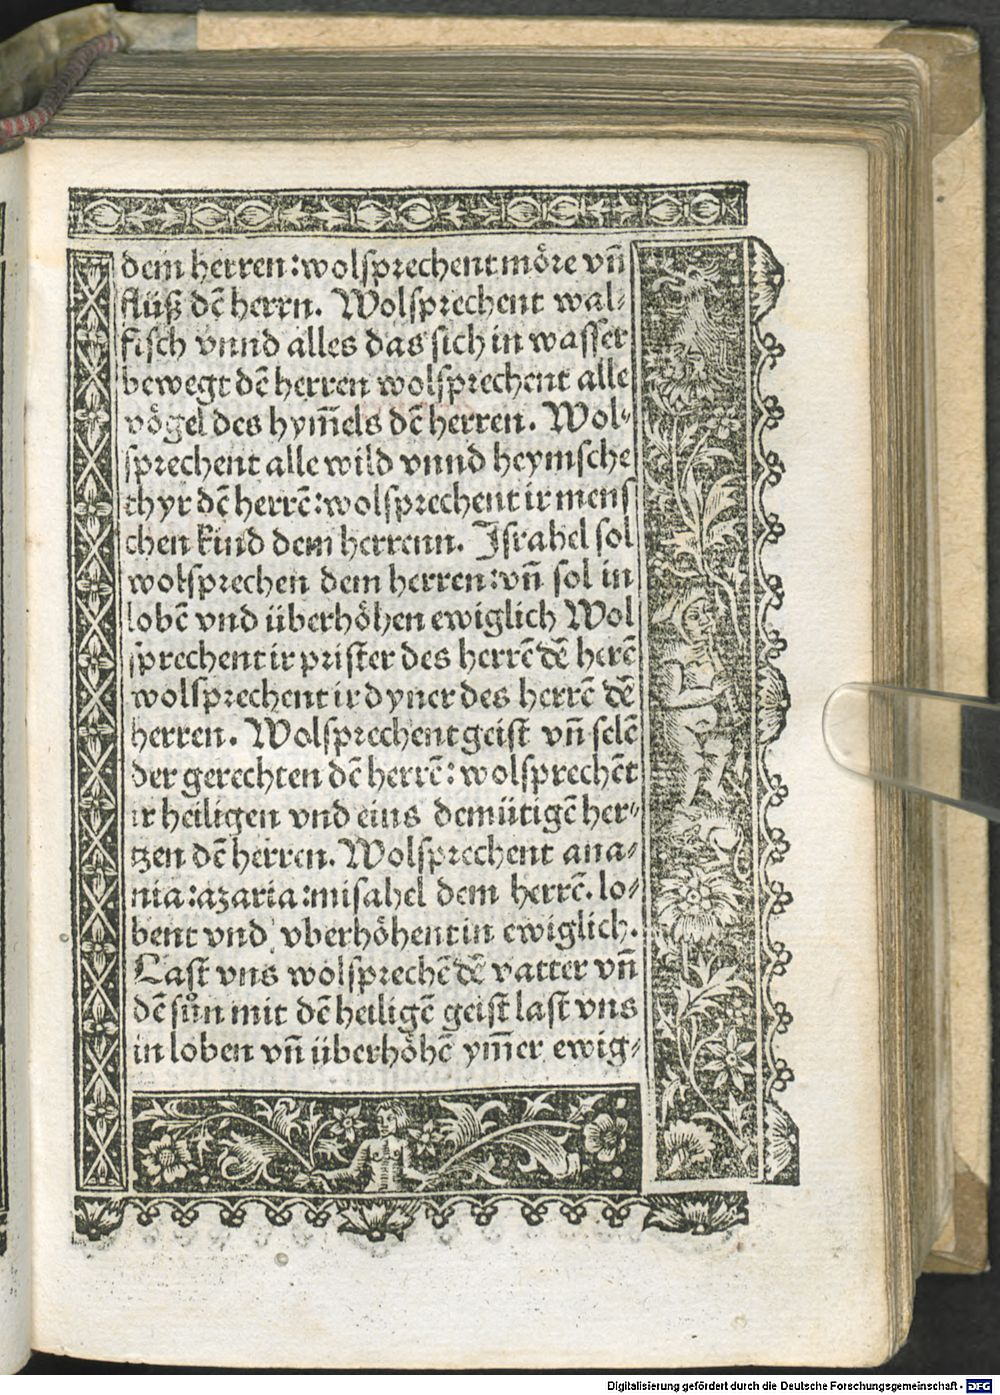 dem herren:wolsprechent möre vn̄
flüß dē herrn. Wolsprechent wal⸗
fisch vnnd alles das sich in wasser
bewegt dē herren wolsprechent alle
vögel des hym̄els dē herren. Wol⸗
sprechent alle wild vnnd heymsche
thyr dē herrē:wolsprechent ir mens
chen kind dem herrenn. Israhel sol
wolsprechen dem herren:vn̄ sol in
lobē vnd überhöhen ewiglich Wol
sprechent ir prister des herrē dē herē
wolsprechent ir dyner des herrē dē
herren. Wolsprechent geist vn̄ selē
der gerechten dē herrē:wolsprechēt
ir heiligen vnd eins demütigē her⸗
tzen dē herren. Wolsprechent ana⸗
nia:azaria:misahel dem herrē. lo⸗
bent vnd vberhöhent in ewiglich.
Last vns wolsprechē dē vatter vn̄
dē sůn mit dē heiligē geist last vns
in loben vn̄ überhöhē ym̄er ewig⸗
Digitalisierung gefördert durch die Deutsche Forschungsgemeinschaft - DFG